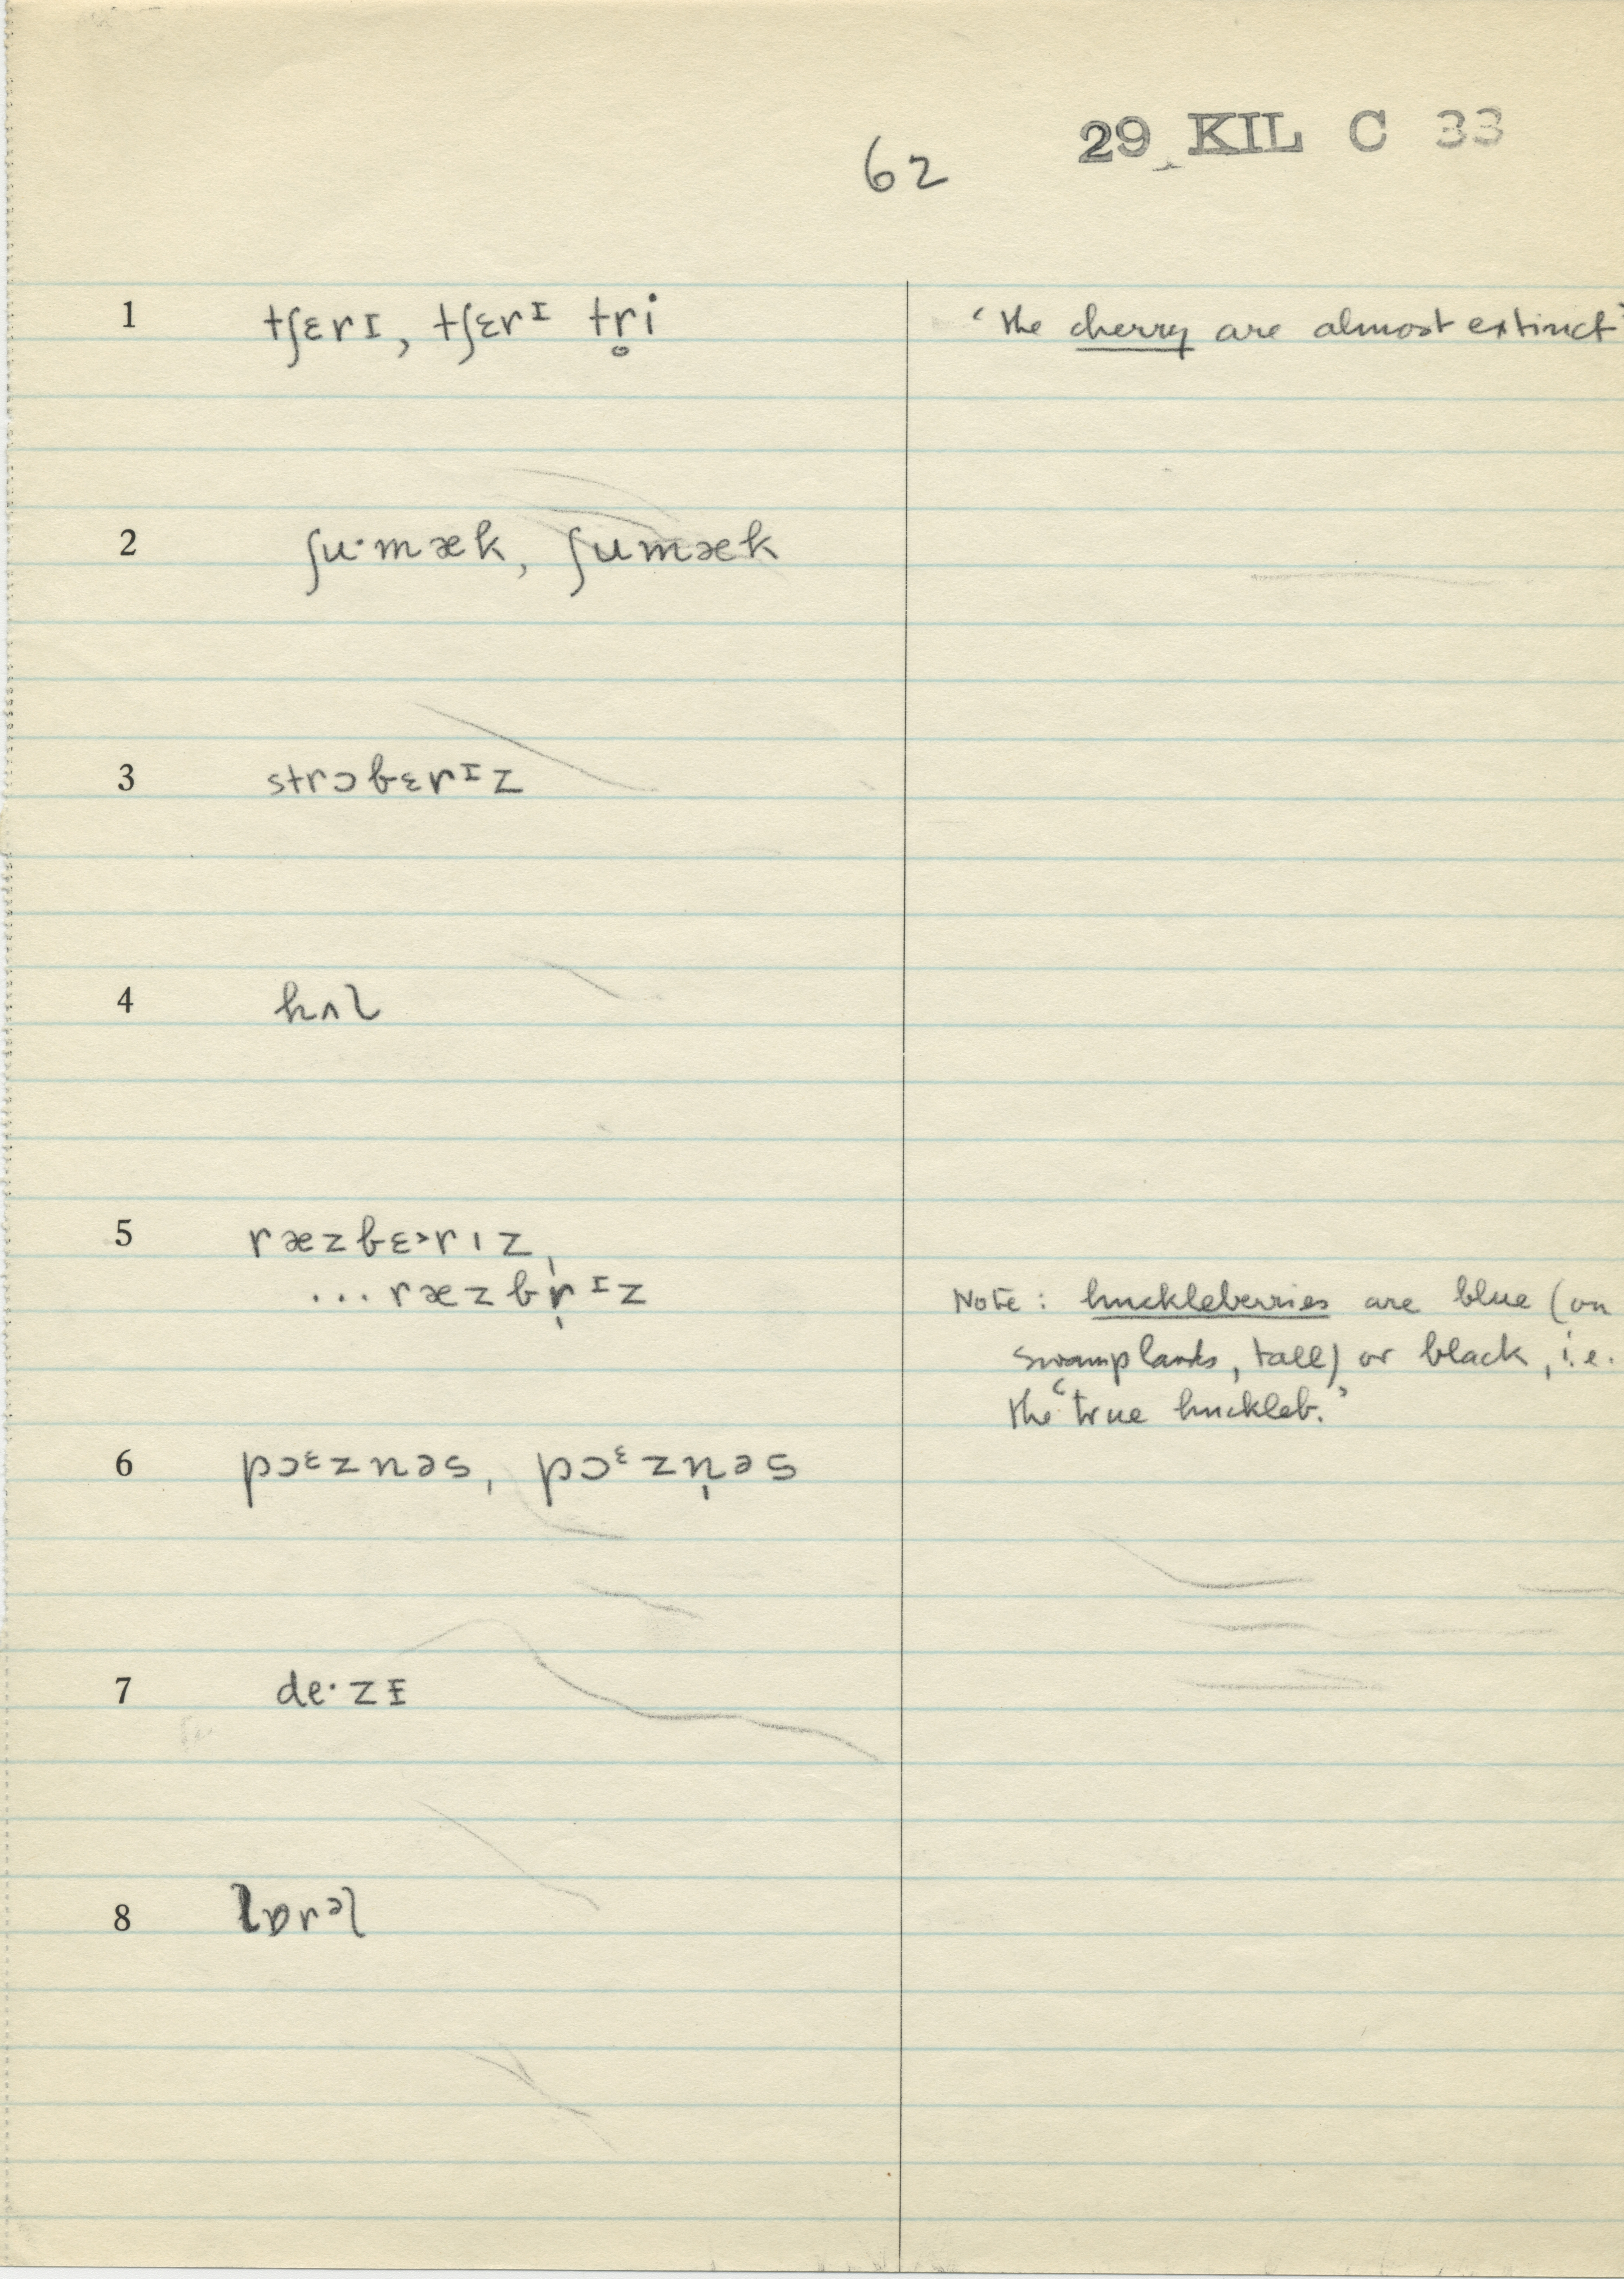 62 29 KIL C 33
1 tʃɛrɪ, tʃɛrᶦ tr̥i ‘the cherry are almost extinct’
2 ʃu·mæk, ʃumæk
3 strɔbɛrᶦz
4 hʌl
5 ræzbɛ˃rɪz,
...ræzbr̩ᶦz Note: huckleberries are blue (on
swamplands, tall) or black, i.e.
the ‘true huckleb.’
6 pɔᵋznəs, pɔᵋzn̩əs
7 de·zᵻ
8 lɒrᵊl